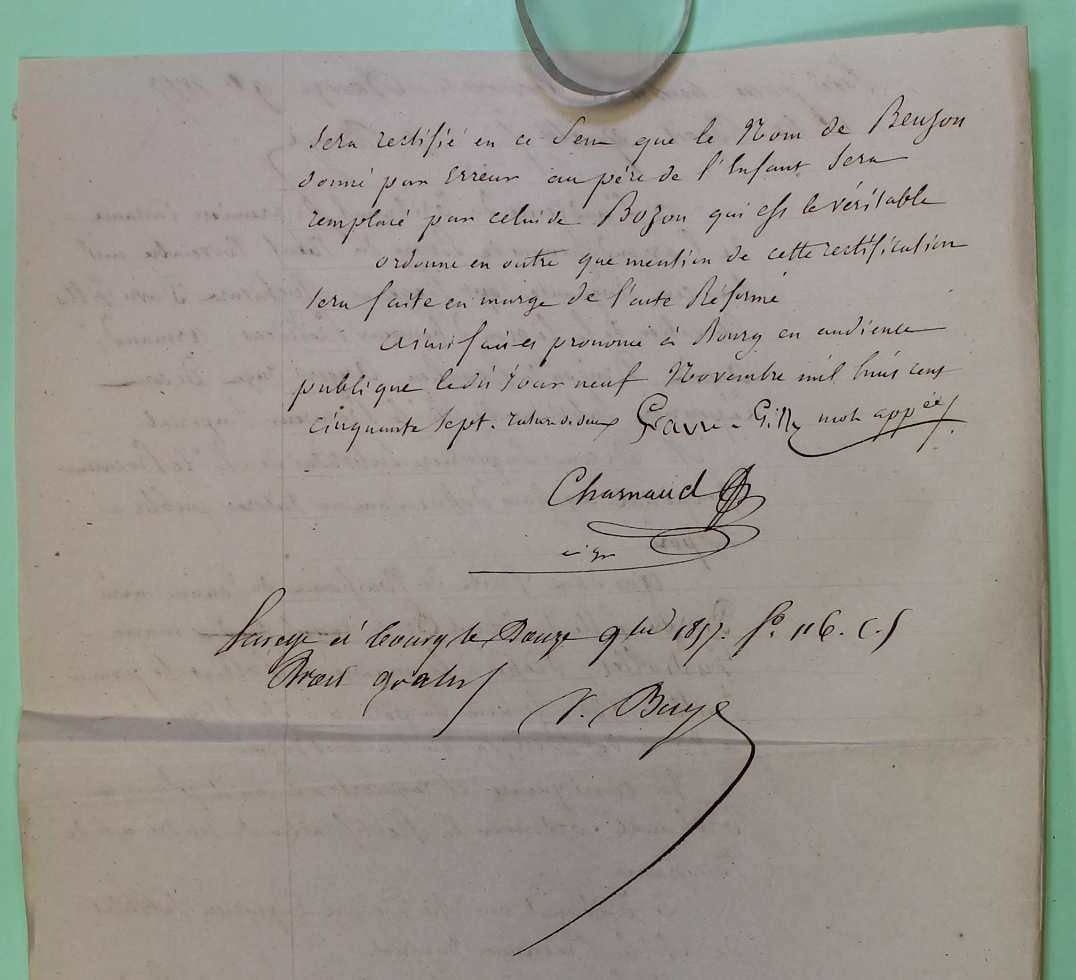 sera rectifié en ce sens que le Nom de Beuzon
donné par Erreur au père de l'Enfant sera
remplacé par celui de Bozon qui est le véritable
ordonne en outre que mention de cette rectification
sera faite en marge de l'acte Réformé
ainsi fait et prononcé à Bourg en audience
publique le dit Jour neuf Novembre mil huit cent
cinquante sept. mots app
Charnaud
à Bourg le Douze 9bre 1857. fo. 116. C.
Droit gratis
V.